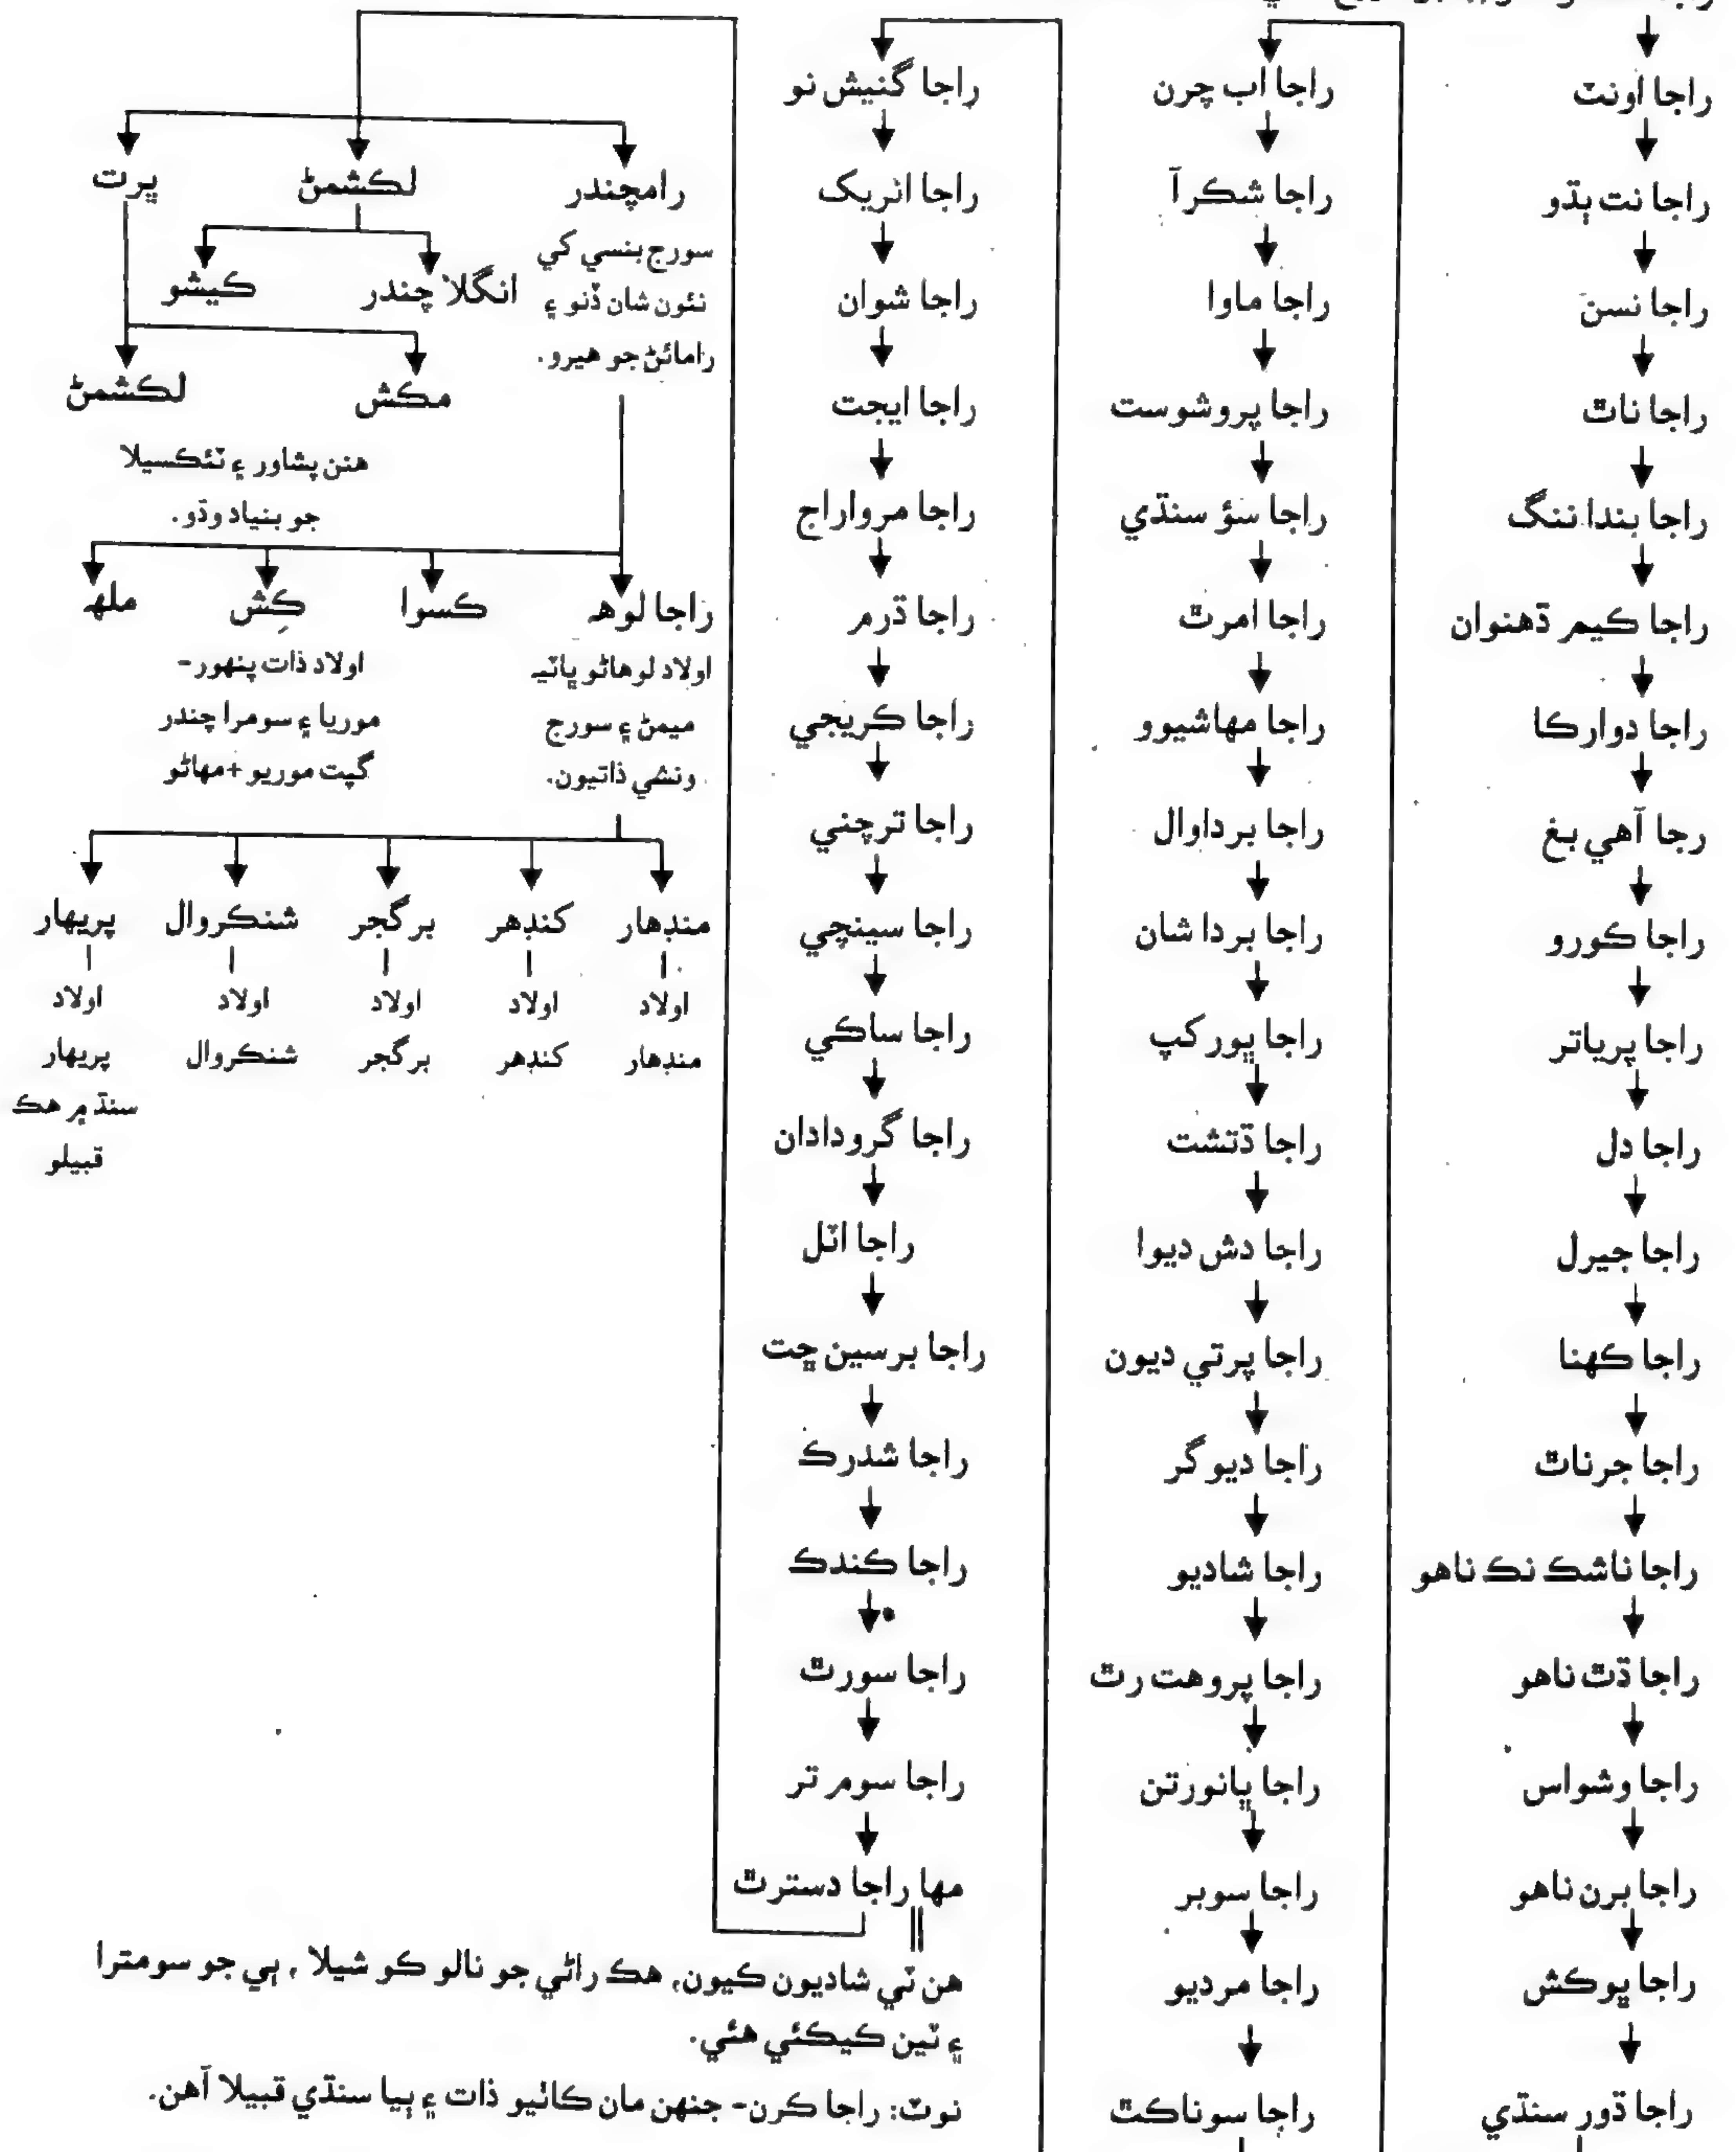 راجا اونٽ
راجا نت ٻڌو
راجا نسن
راجا ناٿ
راجا بندا ننگ
راجا ڪيم ڌهنوان
راجا دوارڪا
رجا آهي بغ
راجا ڪورو
راجا پرياتر
راجا دل
راجا جيرل
راجا ڪهنا
راجا جرناٿ
راجا ناشڪ نڪ ناهو
راجا ڌٿ ناهو
راجا وشواس
راجا برن ناهو
راجا ڀوڪش
راجا ڌور سنڌي
راجا اب چرن
راجا شڪرآ
راجا ماوا
راجا پروشوست
راجا سؤ سنڌي
راجا امرٿ
راجا مهاشيوو
راجا برداوال
راجا بردا شان
راجا ڀورکپ
راجا ڌتشت
راجا دش ديوا
راجا پرتي ديون
راجا ديوگر
راجا شاديو
راجا پروهت رٿ
راجا ڀانورتن
راجا سوبر
راجا مرديو
راجا سوناڪٿ
راجا گنيش نو
راجا انريک
راجا شوان
راجا ايجت
راجا مرواراج
راجا ڌرم
راجا ڪريجي
راجا ترچني
راجا سينچي
راجا ساڪي
راجا گرودادان
راجا اٽل
راجا برسين چت
راجا شدرڪ
راجا ڪندڪ
راجا سورٿ
راجا سوم تر
مها راجا دسترٿ
هن ٽي شاديون ڪيون، هڪ راڻي جو نالو ڪو شيلا، ٻي جو سومترا
۽ ٽين ڪيڪئي هئي.
نوٽ: راجا ڪرن- جنهن مان ڪاٺيو ذات ۽ ٻيا سنڌي قبيلا آهن.
رامچندر
لڪشمڻ
ڀرت
سورج بنسي کي
نئون شان ڏنو ۽
رامائڻ جو هيرو.
انگلا چندر
ڪيشو
مڪش
لڪشمڻ
هنن پشاور ۽ ٽئڪسيلا
جو بنياد وڌو.
راجا لوهہ
ڪسوا
ڪِش
ملهہ
اولاد لوهاڻو ڀاٽيہ
ميمڻ ۽ سورج
ونشي ذاتيون.
اولاد ذات پنهور-
موريا ۽ سومرا چندر
گپت موريو+مهاڻو
مندهار
ڪندهر
برگجر
شنڪروال
پريهار
اولاد
اولاد
اولاد
اولاد
اولاد
مندهار
ڪندهر
برگجر
شنڪروال
پريهار
سنڌ ۾ هڪ
قبيلو